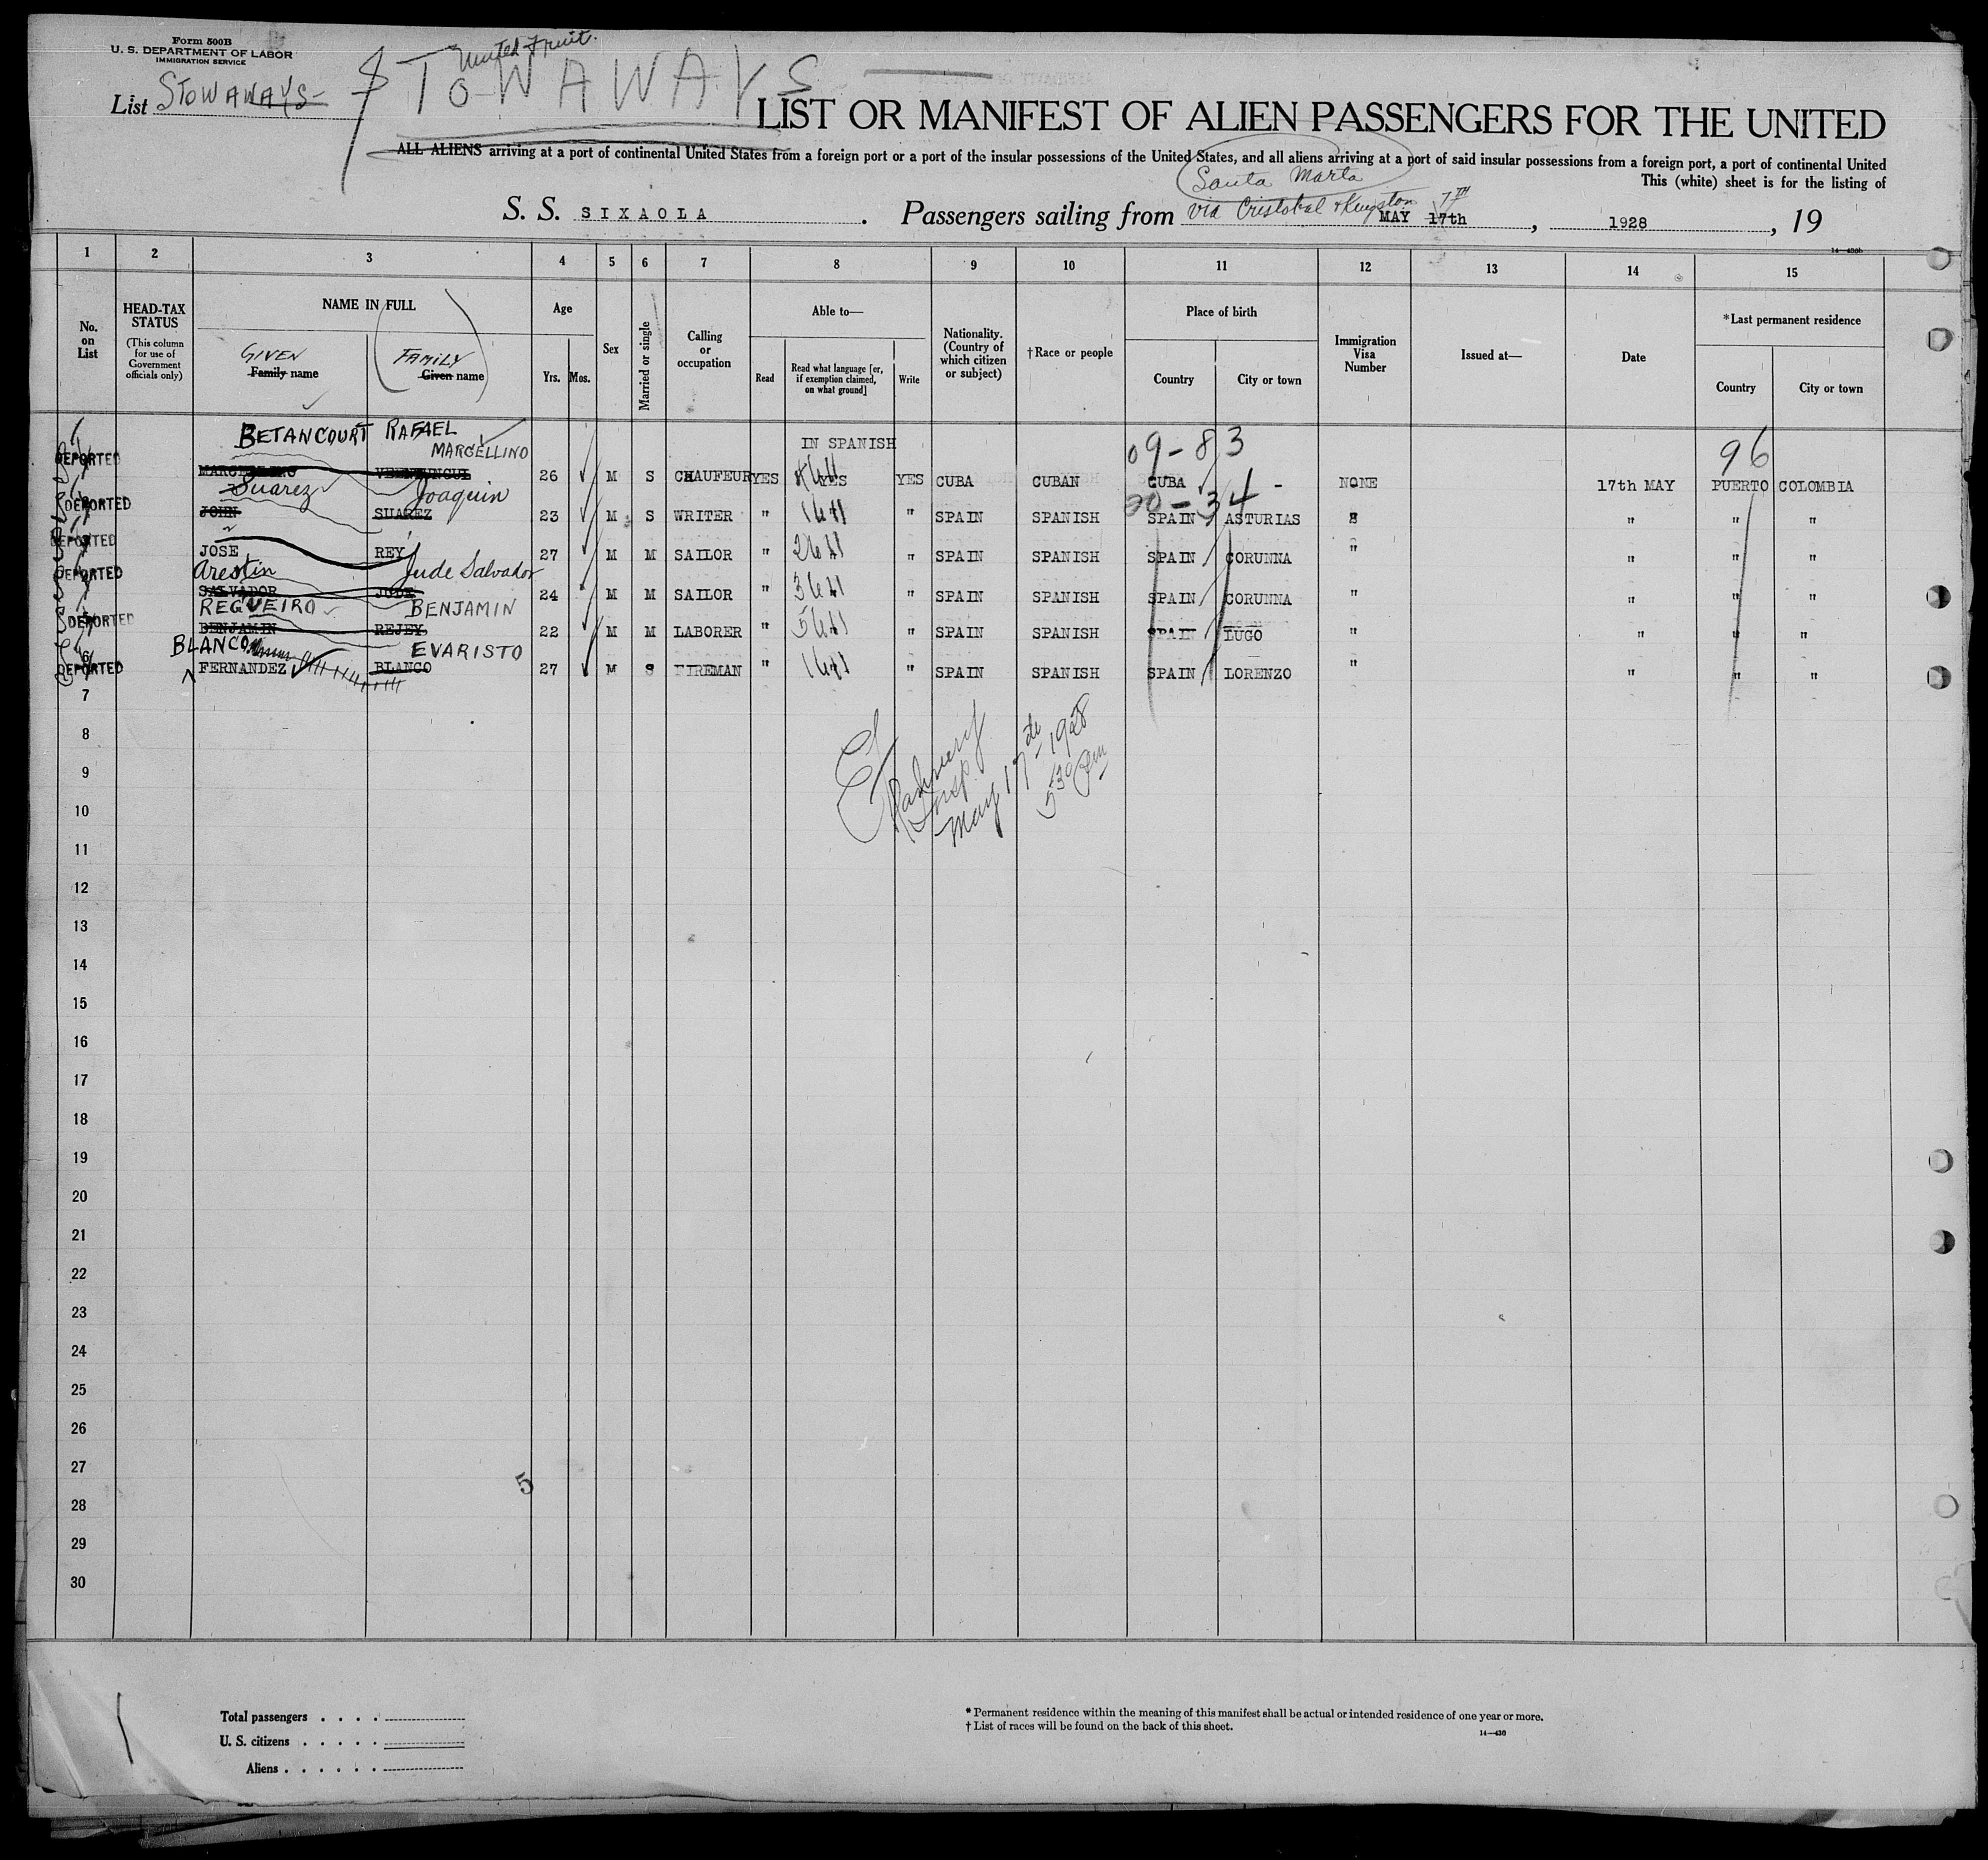 Form 500B
U. S. DEPARTMENT OF LABOR
IMMIGRATION SERVICE
United Fruit.
List STOWAWAYS-
STOWAWAYS
LIST OR MANIFEST OF ALIEN PASSENGERS FOR THE UNITED
ALL ALIENS arriving at a port of continental United States from a foreign port or a port of the insular possessions of the United States, and all aliens arriving at a port of said insular possessions from a foreign port, a port of continental United
This (white) sheet is for the listing of
Santa Marta
S. S. SIXAOLA . Passengers sailing from via Cristobal & Kingston MAY 17th 7TH , 1928 , 19
14—430b
1 2 3 4 5 6 7 8 9 10 11 12 13 14 15
No. on List
HEAD-TAX STATUS
(This column for use of Government officials only)
NAME IN FULL
GIVEN
Family name
FAMILY
Given name
Age
Yrs. Mos.
Sex
Married or single
Calling or occupation
Able to—
Read
Read what language [or, if exemption claimed, on what ground]
Write
Nationality. (Country of which citizen or subject)
†Race or people
Place of birth
Country
City or town
Immigration Visa Number
Issued at—
Date
*Last permanent residence
Country
City or town
BETANCOURT RAFAEL
MARCELLINO
IN SPANISH
09-83
96
DEPORTED 26 M S CHAUFEUR YES YES YES CUBA CUBAN CUBA - NONE 17th MAY PUERTO COLOMBIA
Suarez Joaquin
20-34
DEPORTED JOHN SUAREZ 23 M S WRITER " " SPAIN SPANISH SPAIN ASTURIAS " " "
DEPORTED JOSE REY 27 M M SAILOR " " SPAIN SPANISH SPAIN CORUNNA " " " "
Arestin Jude Salvador
DEPORTED SALVADOR JUDE 24 M M SAILOR " " SPAIN SPANISH SPAIN CORUNNA " " " "
REGUEIRO BENJAMIN
DEPORTED BENJAMIN REJEY 22 M M LABORER " " SPAIN SPANISH SPAIN LUGO " " " "
BLANCO EVARISTO
6 DEPORTED FERNANDEZ BLANCO 27 M S FIREMAN " " SPAIN SPANISH SPAIN LORENZO " " " "
7
8
9
10
11
12
13
14
15
16
17
18
19
20
21
22
23
24
25
26
27
28
29
30
Insp.
May 17th 1928
5 30 pm
5
Total passengers . . . .
U. S. citizens . . . . .
Aliens . . . . . .
* Permanent residence within the meaning of this manifest shall be actual or intended residence of one year or more.
† List of races will be found on the back of this sheet.
14—430